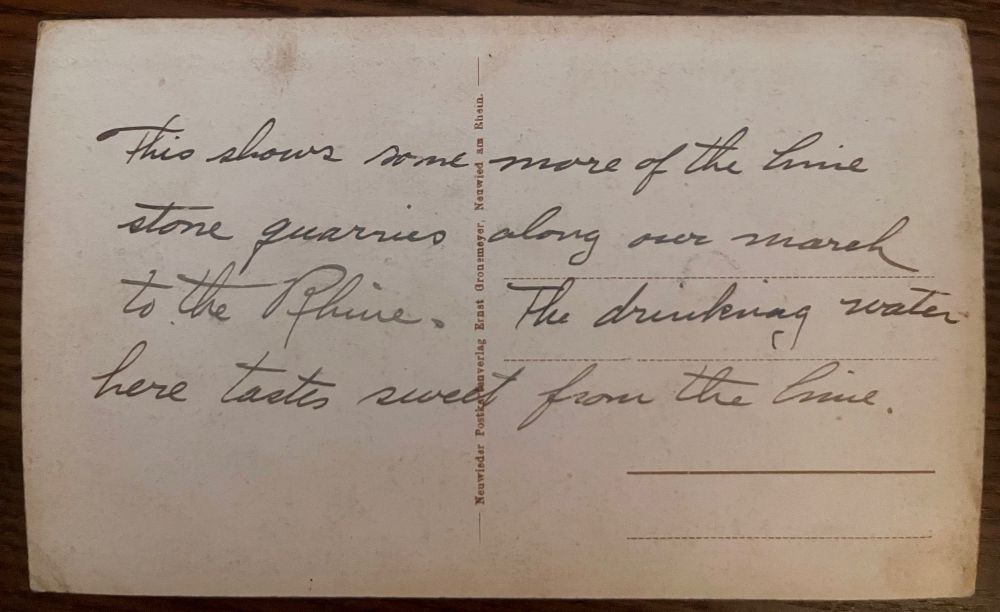 This shows some more of the lime
stone quarries along our march
to the Rhine. The drinking water
here tastes sweet from the lime.
Neuwieder Postkartenverlag Ernst Gronemeyer, Neuwied am Rhein.